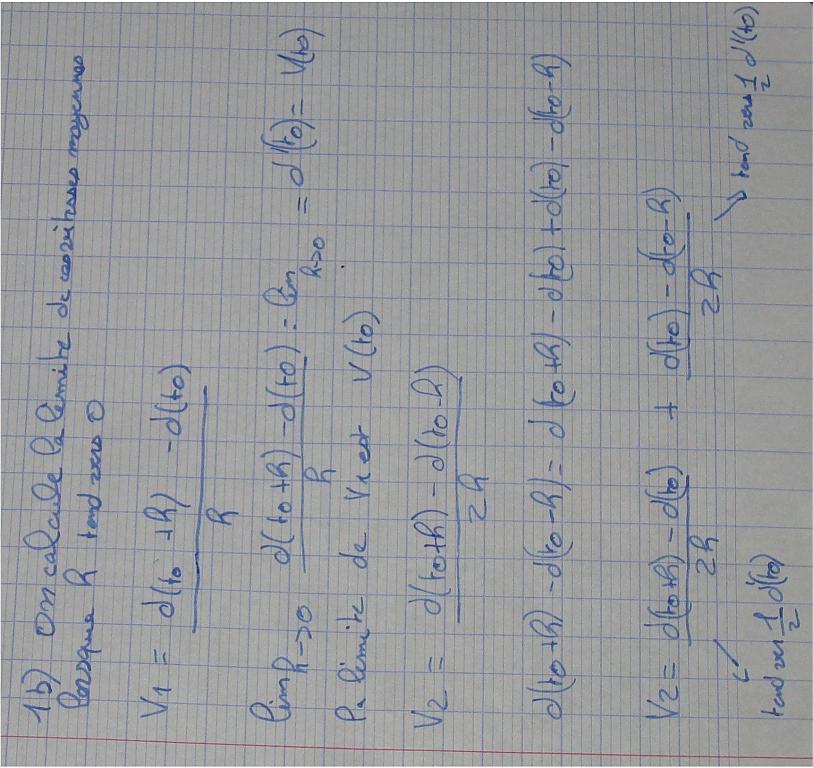 1b) On calcule la limite de ces vitesses moyennes
lorsque h tend vers 0
V1 = d(t0 +h) - d(t0) / h
lim h→0 d(t0+h) - d(t0) / h = lim h→0 = d'(t0) = V(t0)
la limite de V1 est V(t0)
V2 = d(t0+h) - d(t0-h) / 2h
d(t0+h) - d(t0-h) = d(t0+h) - d(t0) + d(t0) - d(t0-h)
V2 = d(t0+h) - d(t0) / 2h + d(t0) - d(t0-h) / 2h
tend vers 1/2 d'(t0) tend vers 1/2 d'(t0)